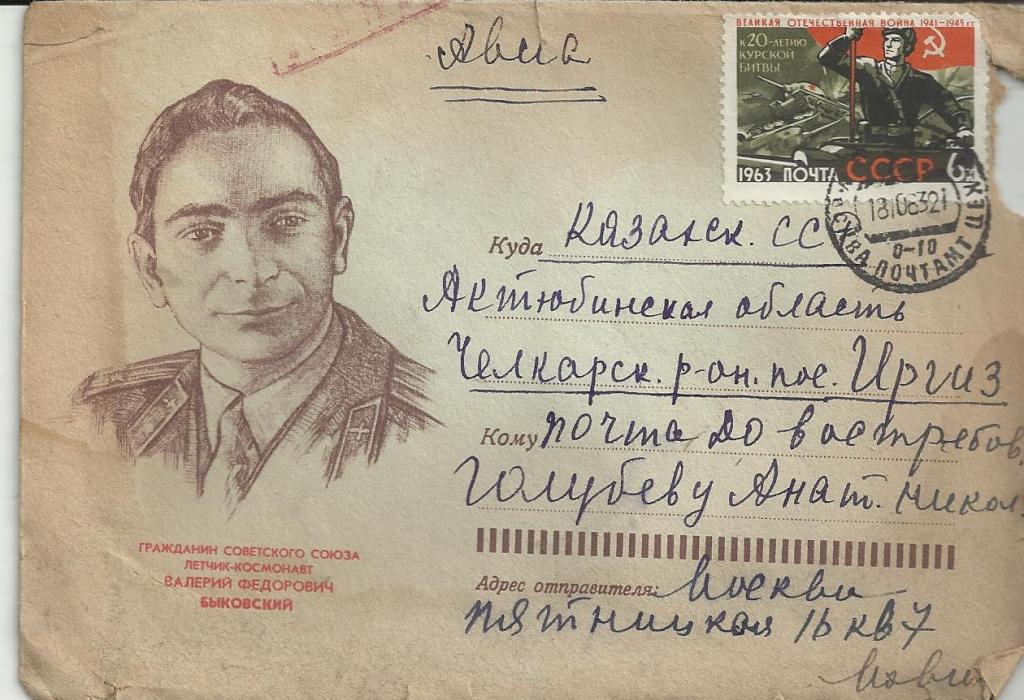 Авиа
ВЕЛИКАЯ ОТЕЧЕСТВЕННАЯ ВОЙНА 1941–1945 гг.
К 20-ЛЕТИЮ
КУРСКОЙ
БИТВЫ
1963 ПОЧТА СССР 6к
МОСКВА ПОЧТАМТ ЦЕХ
0-10
Куда Казахск. СС
Актюбинская область
Челкарск. р-он. пос. Иргиз
Кому почта до востребов.
Голубеву Анат. Никол.
Адрес отправителя: Москва
Пятницкая 16 кв 7
ГРАЖДАНИН СОВЕТСКОГО СОЮЗА
ЛЕТЧИК-КОСМОНАВТ
ВАЛЕРИЙ ФЕДОРОВИЧ
БЫКОВСКИЙ